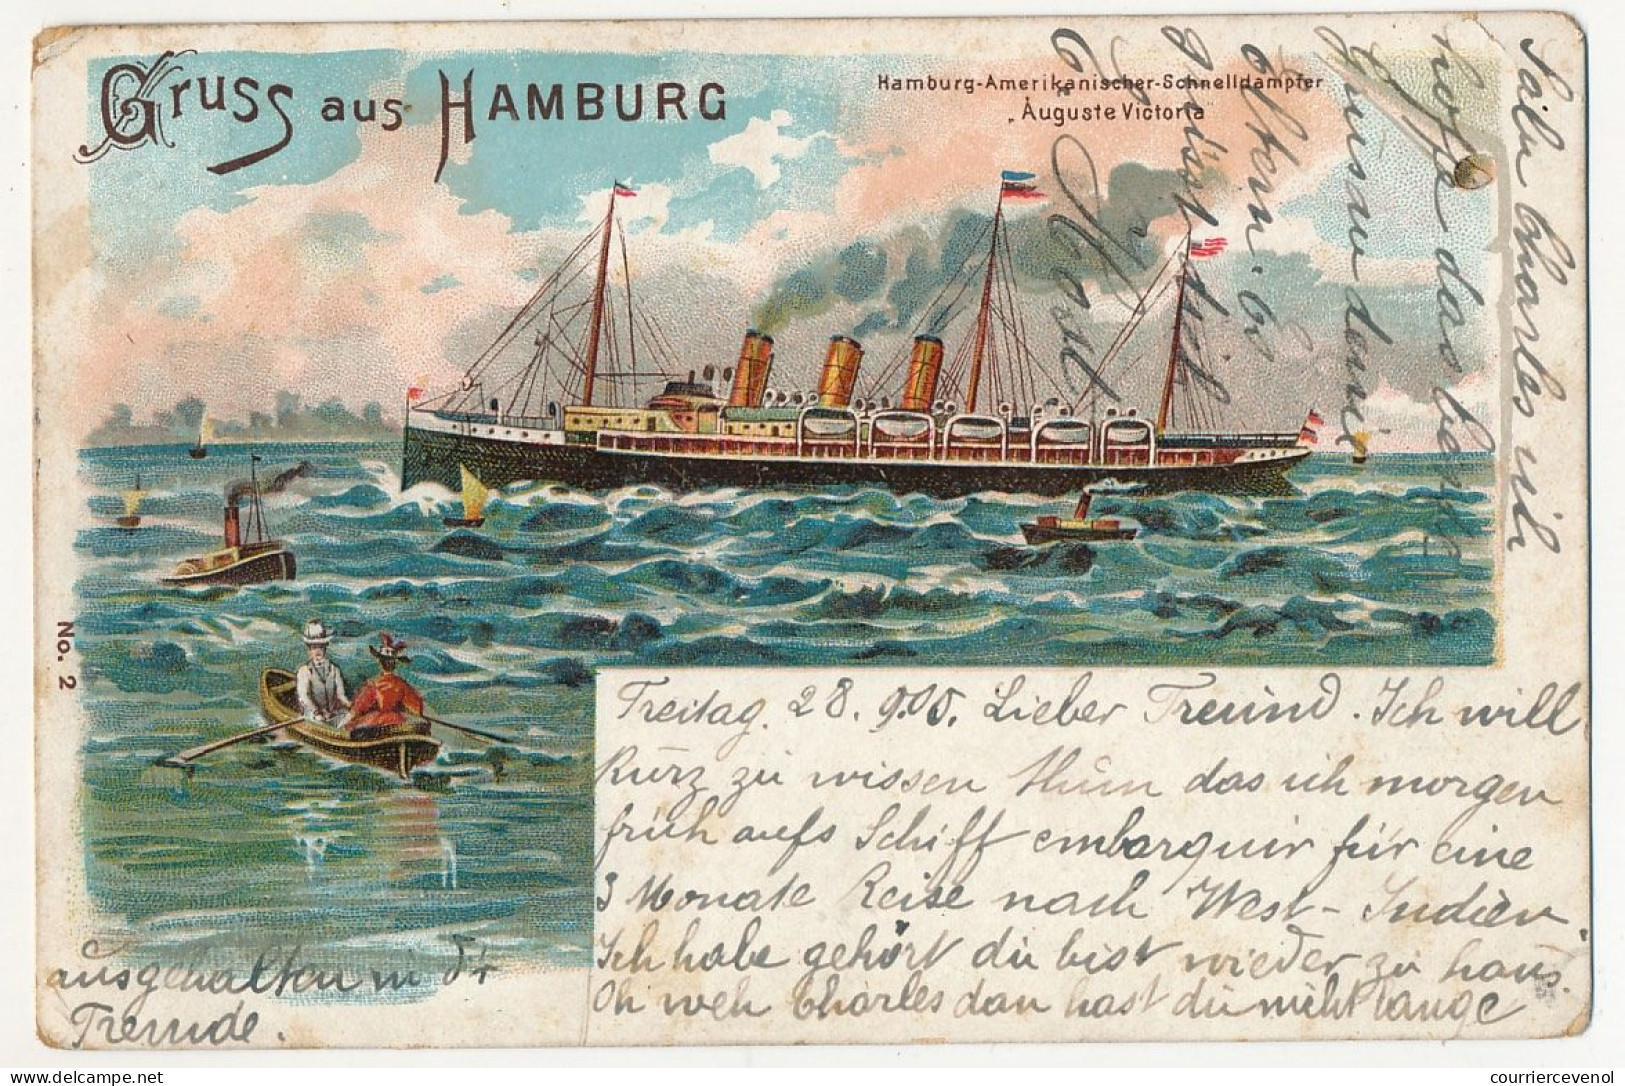 Gruss aus Hamburg
Hamburg-Amerikanischer-Schnelldampfer
„Auguste Victoria"
No. 2
Freitag. 28. 9.00. Lieber Freund. Ich will
Kurz zu wissen thun das ich morgen
früh aufs Schiff embarquir für eine
3 Monate Reise nach West-Indien.
Ich habe gehört du bist wieder zu haus.
Oh weh Charles dan hast du nicht lange
ausgehalten in dr
Fremde.
Charles ich
hoffe das